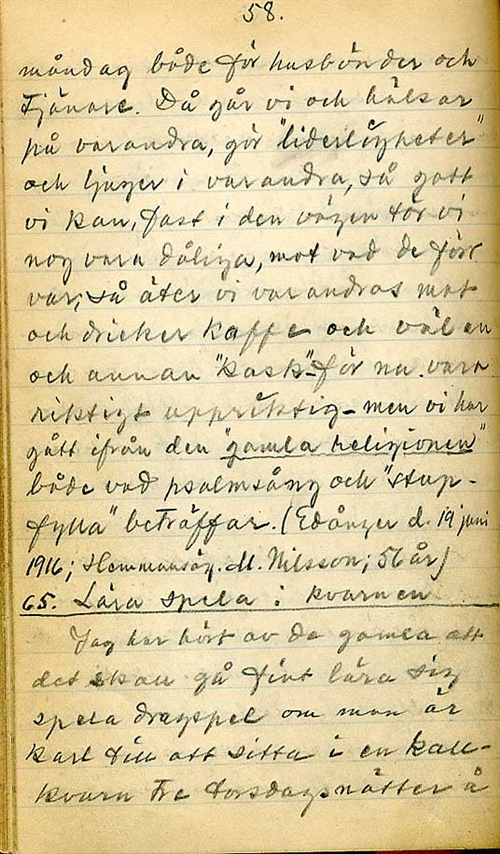 58.
måndag både för husbönder och
tjänare. Då går vi och hälsar
på varandra, gör "liderlögheter"
och ljuger i varandra, så gott
vi kan, fast i den vägen tör vi
nog vara dåliga, mot vad de förr
var; så äter vi varandras mat
och dricker kaffe och väl en
och annan "kask" för nu vara
riktigt uppriktig - men vi har
gått ifrån den "gamla religionen"
både vad psalmsång och "stup-
fylla" beträffar. (Edånger d. 19 juni
1916; Hemmansäg. M. Nilsson; 56 år)
65. Lära spela i kvarnen
Jag har hört av de gamla att
det skall gå fint lära sig
spela dragspel om man är
karl till att sitta i en kall-
kvarn tre torsdagsnätter å